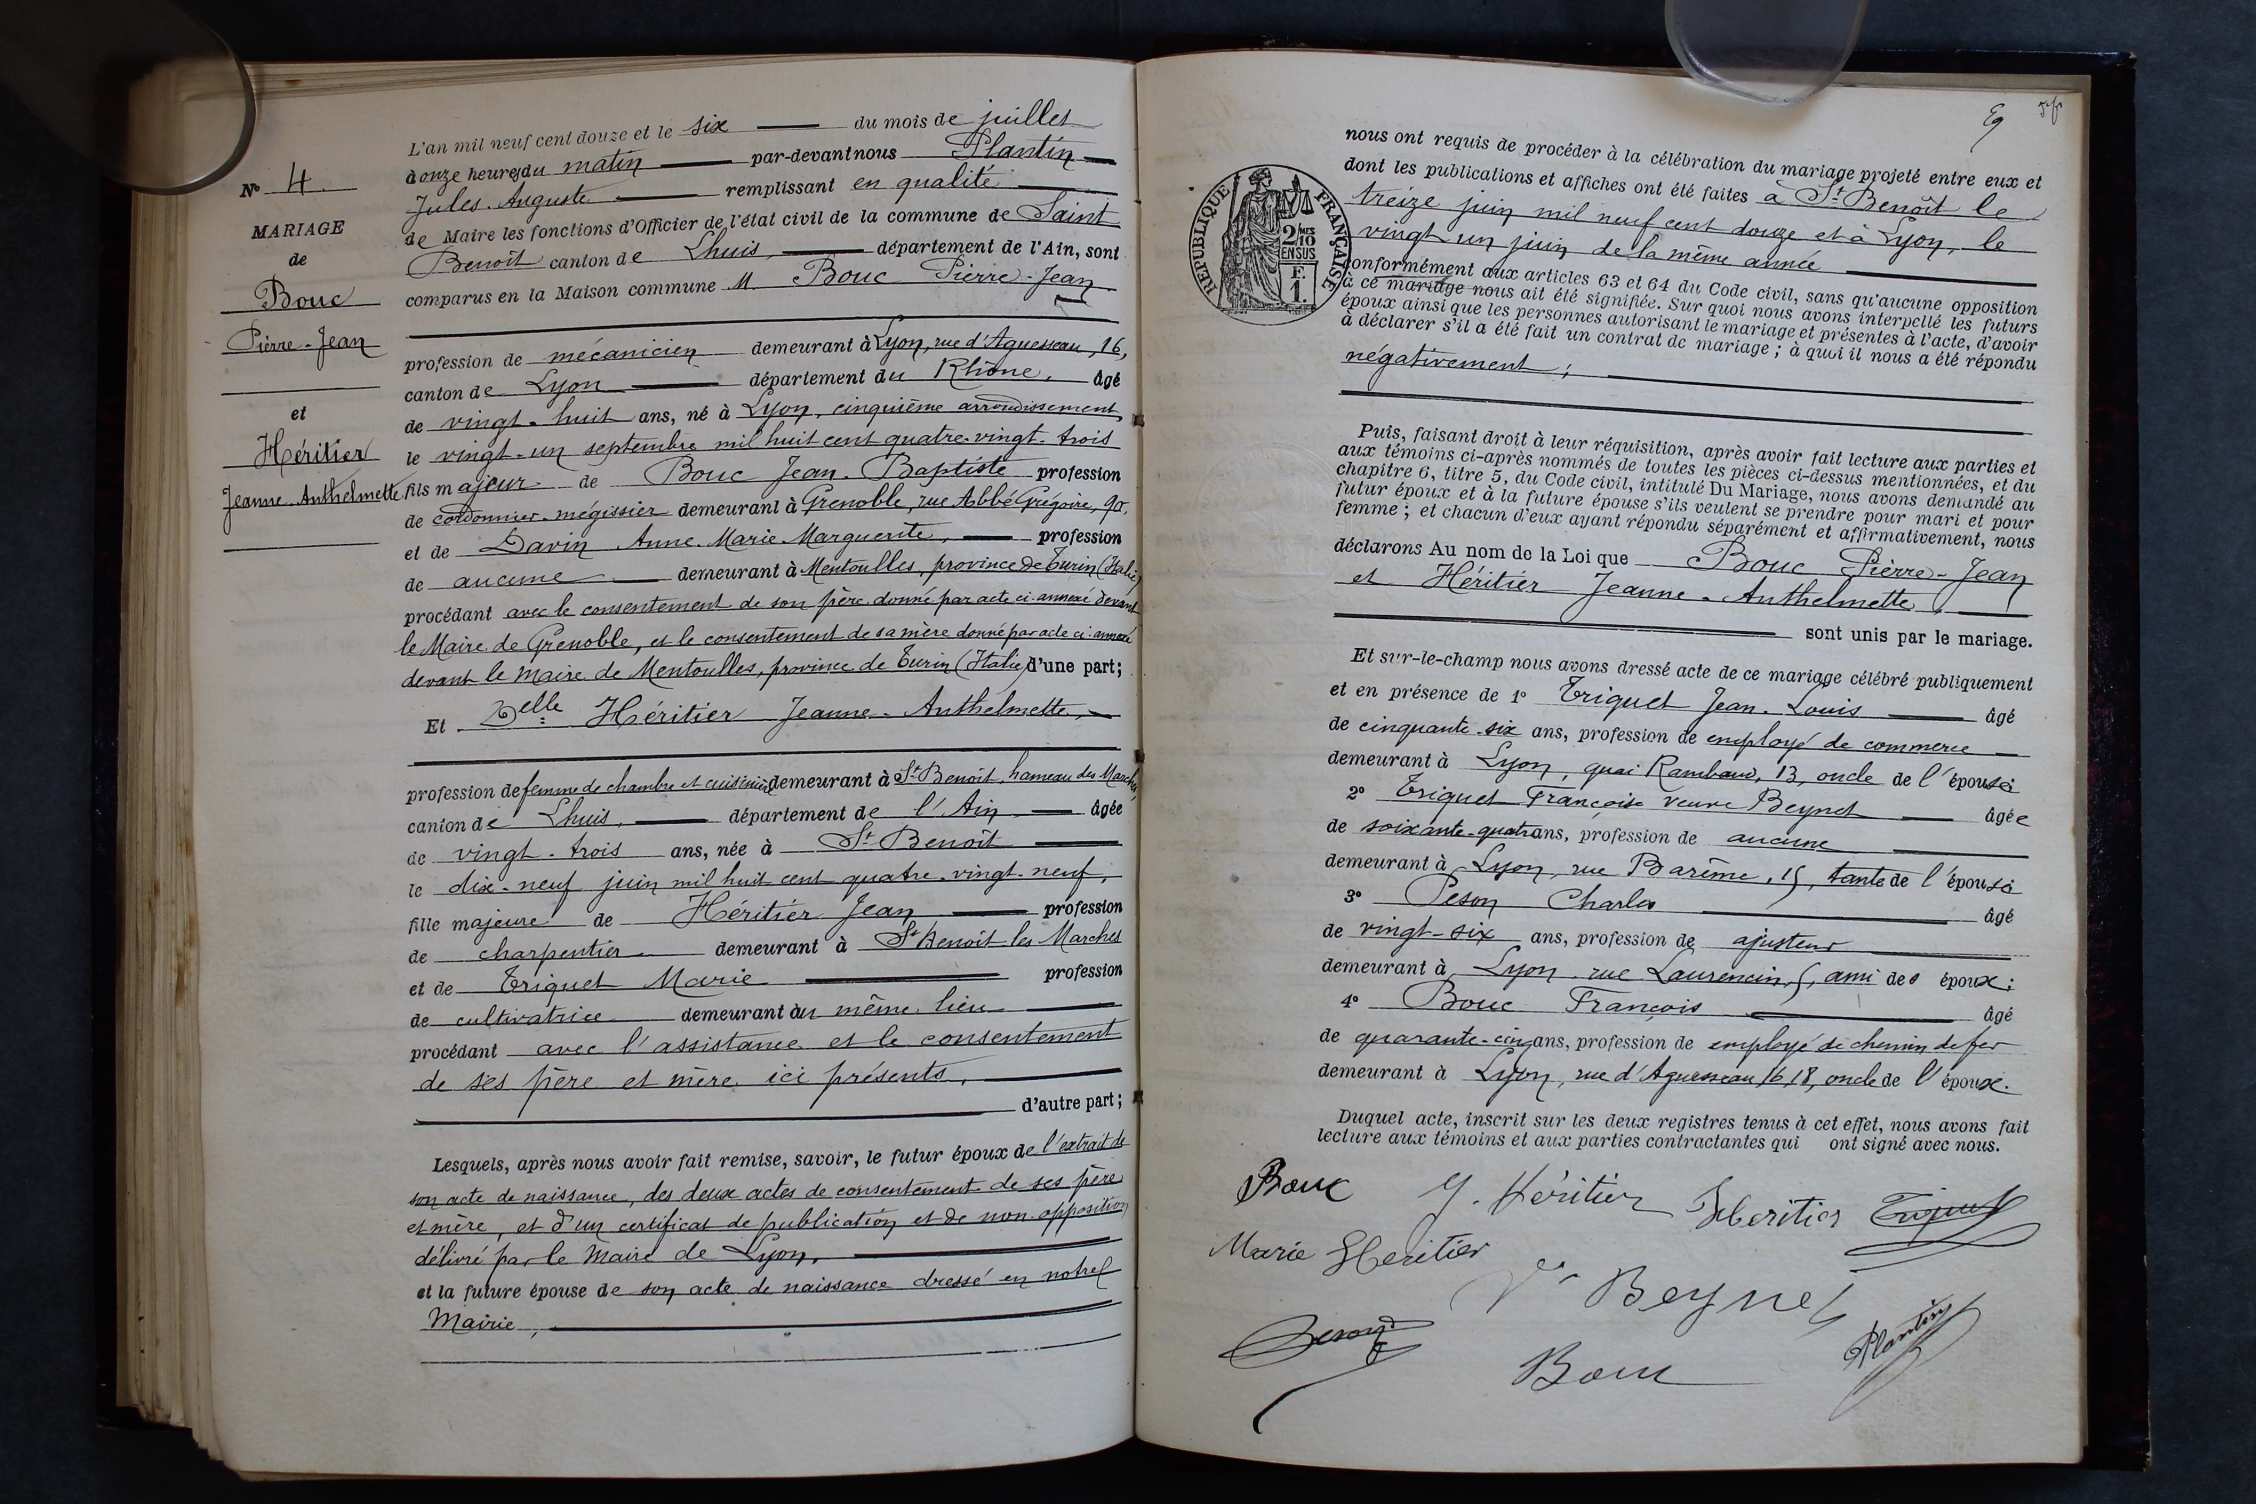 N° 4.
MARIAGE
de
Bouc
Pierre-Jean
et
Héritier
Jeanne-Anthelmette
L'an mil neuf cent douze et le six du mois de juillet
à onze heures du matin par-devant nous Plantin
Jules-Auguste remplissant en qualité
de Maire les fonctions d'Officier de l'état civil de la commune de Saint
Benoît canton de Lhuis, département de l'Ain, sont
comparus en la Maison commune M. Bouc Pierre-Jean
profession de mécanicien demeurant à Lyon, rue d'Aguesseau, 16,
canton de Lyon département du Rhône, âgé
de vingt-huit ans, né à Lyon, cinquième arrondissement,
le vingt-un septembre mil huit cent quatre-vingt-trois
fils majeur de Bouc Jean-Baptiste profession
de cordonnier-mégissier demeurant à Grenoble, rue Abbé Grégoire, 90,
et de Davin Anne-Marie-Marguerite, profession
de aucune demeurant à Mentoulles, province de Turin (Italie)
procédant avec le consentement de son père donné par acte ci-annexé devant
le Maire de Grenoble, et le consentement de sa mère donné par acte ci-annexé
devant le Maire de Mentoulles, province de Turin (Italie) d'une part;
Et Delle Héritier Jeanne-Anthelmette,
profession de femme de chambre et cuisinière demeurant à St Benoît, hameau des Marches,
canton de Lhuis, département de l'Ain âgée
de vingt-trois ans, née à St Benoît
le dix-neuf juin mil huit cent quatre-vingt-neuf,
fille majeure de Héritier Jean profession
de charpentier demeurant à St Benoît les Marches
et de Triquet Marie profession
de cultivatrice demeurant au même lieu
procédant avec l'assistance et le consentement
de ses père et mère ici présents,
d'autre part;
Lesquels, après nous avoir fait remise, savoir, le futur époux de l'extrait de
son acte de naissance, des deux actes de consentement de ses père
et mère, et d'un certificat de publication et de non-opposition
délivré par le Maire de Lyon,
et la future épouse de son acte de naissance dressé en notre
Mairie,
nous ont requis de procéder à la célébration du mariage projeté entre eux et
dont les publications et affiches ont été faites à St Benoît le
treize juin mil neuf cent douze et à Lyon, le
vingt-un juin de la même année
conformément aux articles 63 et 64 du Code civil, sans qu'aucune opposition
à ce mariage nous ait été signifiée. Sur quoi nous avons interpellé les futurs
époux ainsi que les personnes autorisant le mariage et présentes à l'acte, d'avoir
à déclarer s'il a été fait un contrat de mariage; à quoi il nous a été répondu
négativement;
RÉPUBLIQUE FRANÇAISE
2/10 MES
EN SUS
F.
1.
Puis, faisant droit à leur réquisition, après avoir fait lecture aux parties et
aux témoins ci-après nommés de toutes les pièces ci-dessus mentionnées, et du
chapitre 6, titre 5, du Code civil, intitulé Du Mariage, nous avons demandé au
futur époux et à la future épouse s'ils veulent se prendre pour mari et pour
femme; et chacun d'eux ayant répondu séparément et affirmativement, nous
déclarons Au nom de la Loi que Bouc Pierre-Jean
et Héritier Jeanne-Anthelmette,
sont unis par le mariage.
Et sur-le-champ nous avons dressé acte de ce mariage célébré publiquement
et en présence de 1° Triquet Jean-Louis âgé
de cinquante-six ans, profession de employé de commerce
demeurant à Lyon, quai Rambaud, 13, oncle de l'épouse;
2° Triquet Françoise veuve Beynet âgée
de soixante-quatre ans, profession de aucune
demeurant à Lyon, rue Barême, 15, tante de l'épouse
3° Peson Charles âgé
de vingt-six ans, profession de ajusteur
demeurant à Lyon rue Laurencin, 5, ami des époux;
4° Bouc François âgé
de quarante-cinq ans, profession de employé de chemin de fer
demeurant à Lyon, rue d'Aguesseau 16, 18, oncle de l'époux.
Duquel acte, inscrit sur les deux registres tenus à cet effet, nous avons fait
lecture aux témoins et aux parties contractantes qui ont signé avec nous.
Bouc J. Héritier Heritier Triquet
Marie Heritier
Ve Beynet
Peson
Bouc
Plantin